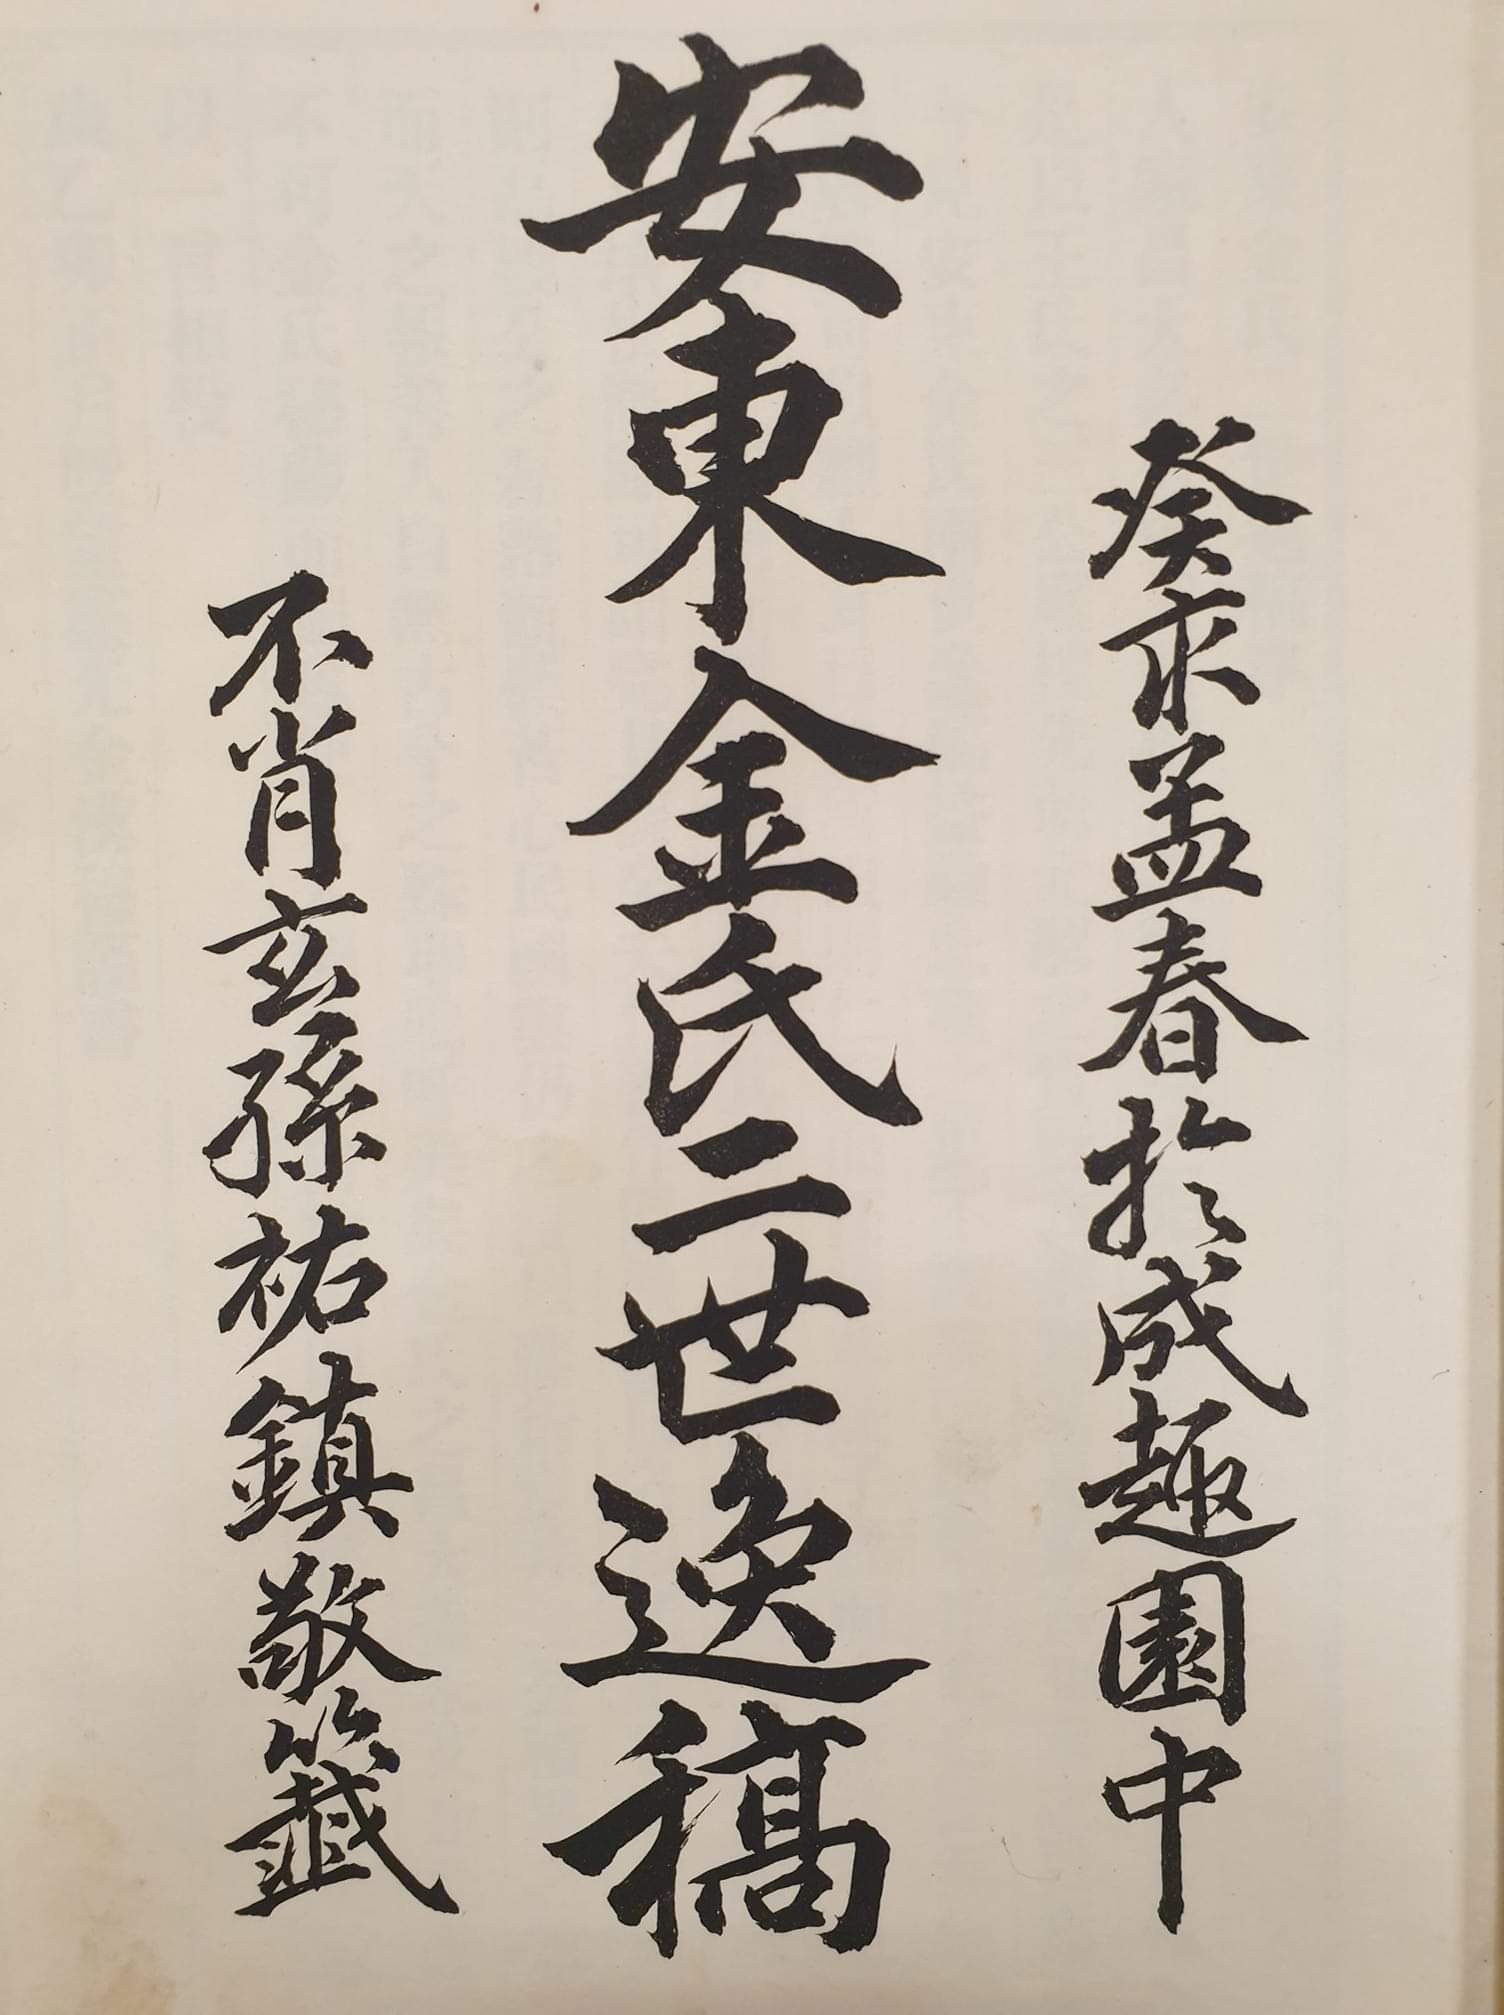 癸亥孟春於成趣園中
安東金氏二世逸稿
不肖玄孫祐鎮敬籤